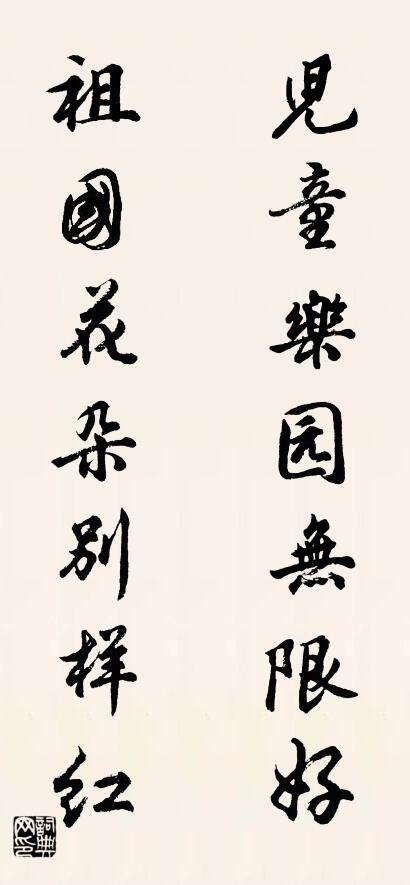 兒童樂园無限好
祖國花朵别樣红
詞典网印